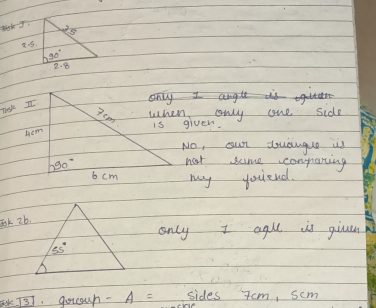 Task I.
2.5.
90°
2.8
Task II
4cm
7cm
90°
6 cm
only 1 angle is given
when only one side
is given.
No, our triangle is
not same comparing
my friend.
Task 2b.
55°
only 1 agle is given
Task [3]. group - A = sides 7cm, 5cm